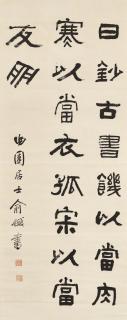 日鈔古書饑以當肉
寒以當衣孤宋以當
友朋
曲園居士俞樾書